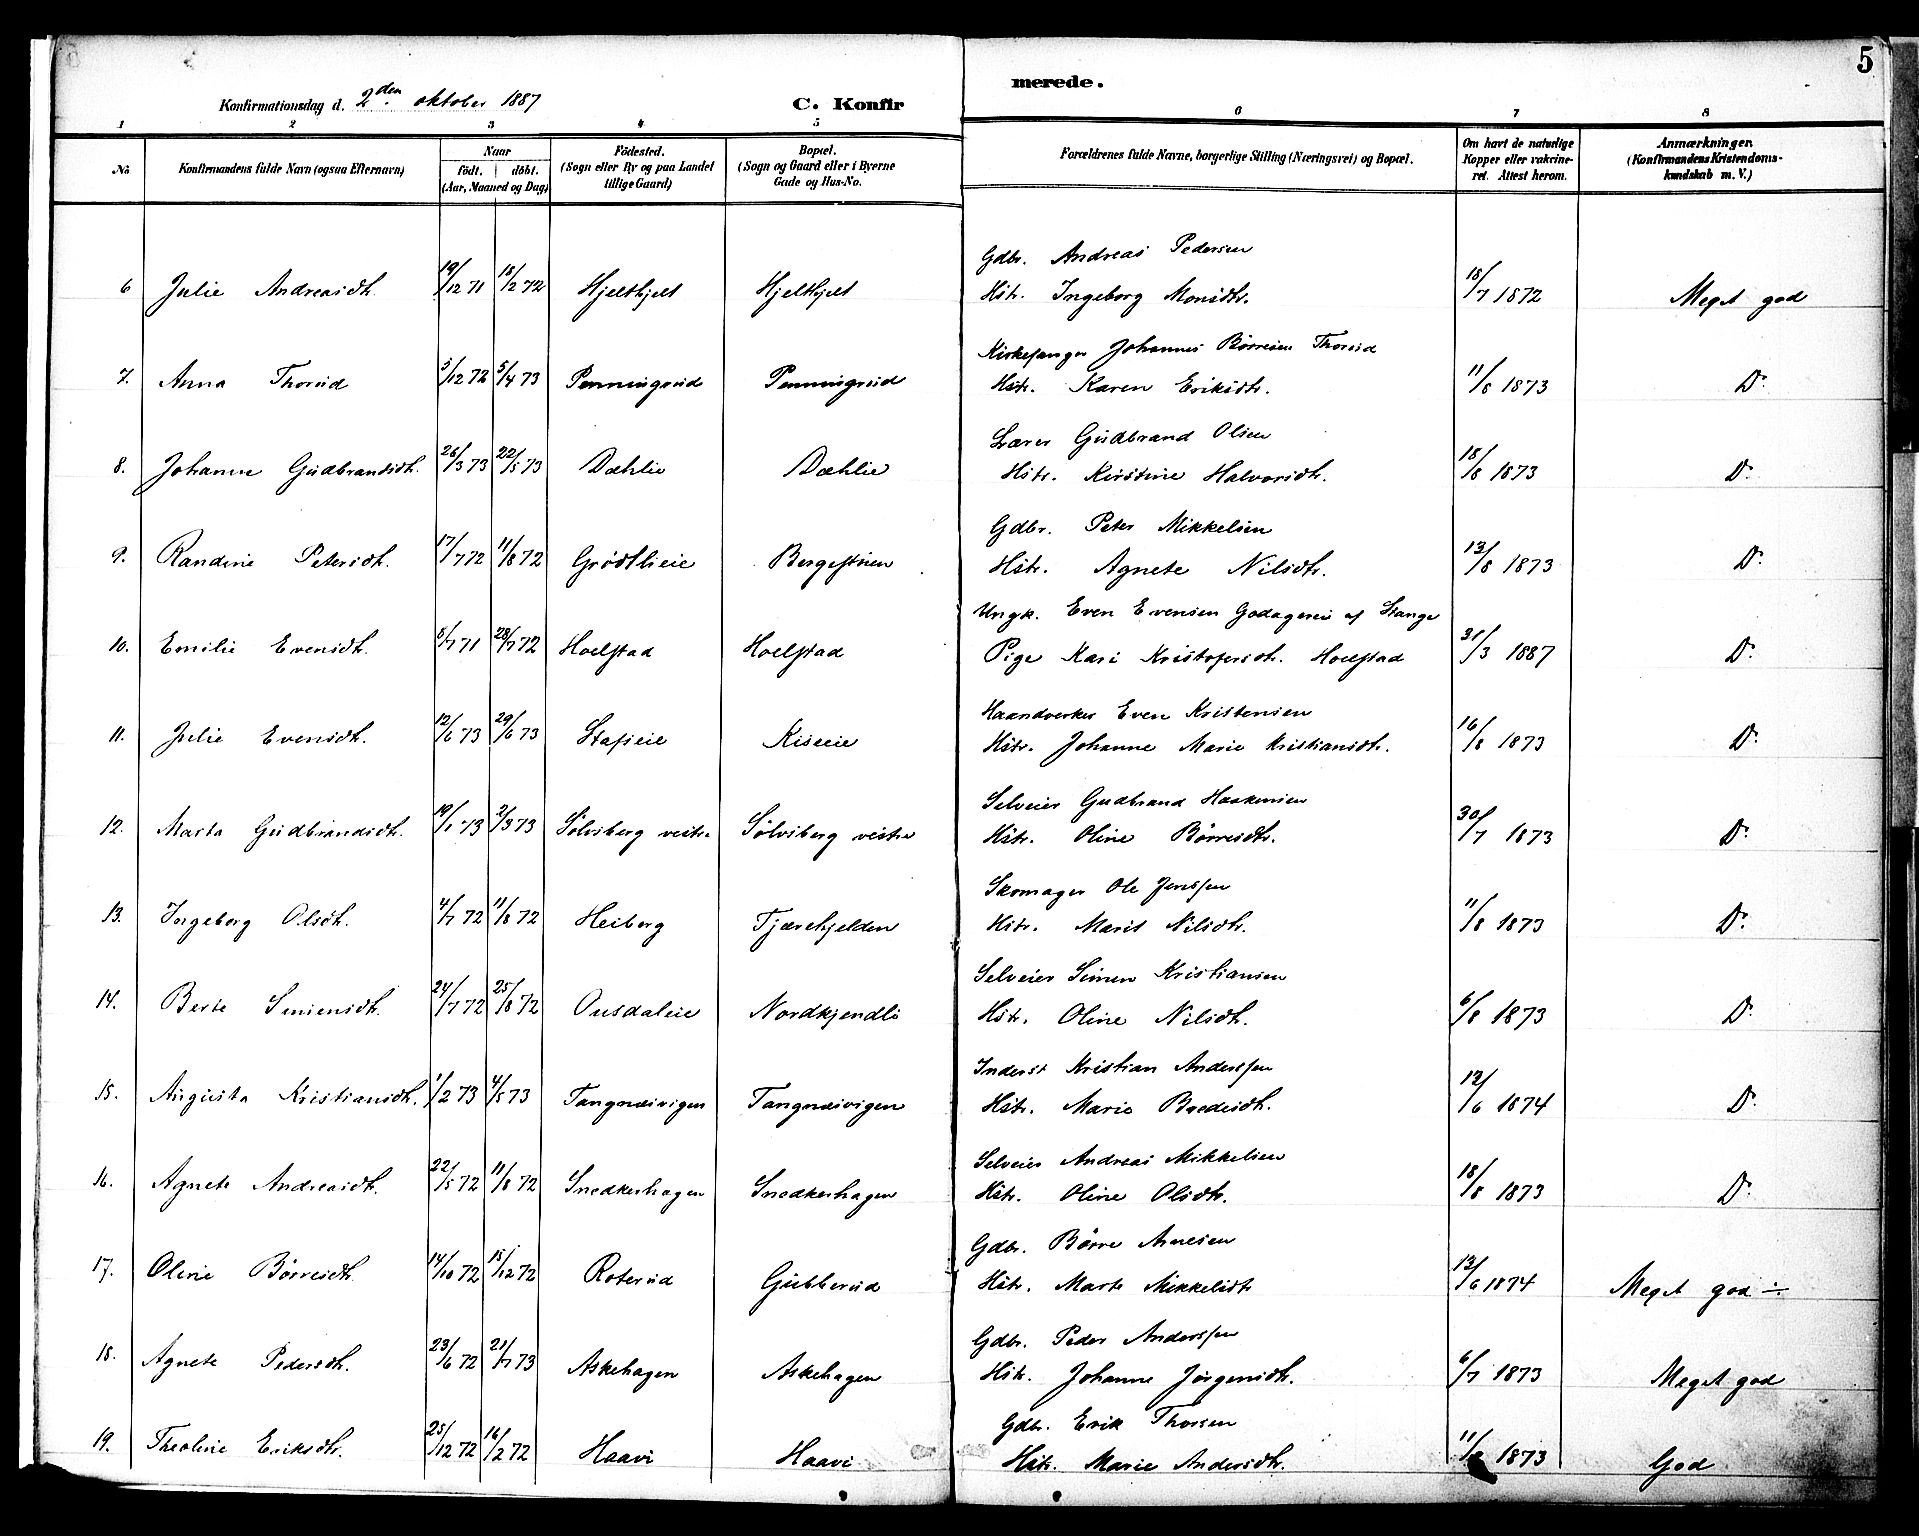 5
Konfirmationsdag d. 2den oktober 1887
C. Konfir
merede.
1 2 3 4 5 6 7 8
No Konfirmandens fulde Navn (ogsaa Efternavn) Naar födt. döbt. (Aar, Maaned og Dag) Födested. (Sogn eller By og paa Landet tillige Gaard) Bopæl. (Sogn og Gaard eller i Byerne Gade og Hus-No. Forældrenes fulde Navne, borgerlige Stilling (Næringsvei) og Bopæl. Om havt de naturlige Kopper eller vakcineret. Attest herom. Anmærkninger. (Konfirmandens Kristendomskundskab m. V.)
Gdbr. Andreas Pedersen
6 Julie Andreasdtr. 19/12 71 18/2 72 Hjelthjelt Hjelthjelt Hstr. Ingeborg Monsdtr. 18/7 1872 Meget god
Kirkesanger Johannes Börresen Thorud
7. Anna Thorud 3/12 72 5/4 73 Penningrud Penningrud Hstr. Karen Eriksdtr. 11/8 1873 Do
Lærer Gudbrand Olsen
8. Johanne Gudbrandsdtr. 26/3 73 22/5 73 Dæhlie Dæhlie Hstr. Kirstine Halvorsdtr. 18/8 1873 Do
Gdbr. Peter Mikkelsen
9. Randine Petersdtr. 17/7 72 11/8 72 Grödtlieie Bergestuen Hstr. Agnete Nilsdtr. 13/8 1873 Do
Ungk. Even Evensen Godagereie af Stange
10. Emilie Evensdtr. 8/7 71 28/7 72 Hoelstad Hoelstad Pige Kari Kristofersdtr. Hoelstad 31/3 1887 Do
Haandverker Even Kristensen
11. Julie Evensdtr. 12/6 73 29/6 73 Stafseie Kiseeie Hstr. Johanne Marie Kristiansdtr. 16/8 1873 Do
Selveier Gudbrand Haakensen
12. Marta Gudbrandsdtr. 19/1 73 2/3 73 Sölvsberg vestre Sölvsberg vestre Hstr. Oline Börresdtr. 30/7 1873 Do
Skomager Ole Jenssen
13. Ingeborg Olsdtr. 4/7 72 11/8 72 Heiberg Tjærehjelden Hstr. Marit Nilsdtr. 11/8 1873 Do
Selveier Simen Kristiansen
14. Berte Simensdtr. 24/7 72 25/8 72 Ousdaleie Nordkjendli Hstr. Oline Nilsdtr. 6/8 1873 Do
Inderst Kristian Anderssen
15. Augusta Kristiansdtr. 1/2 73 4/5 73 Tangnæsvigen Tangnæsvigen Hstr. Marie Bredesdtr. 12/6 1874 Do
Selveier Andreas Mikkelsen
16. Agnete Andreasdtr. 22/5 72 11/8 72 Snedkerhagen Snedkerhagen Hstr. Oline Olsdtr. 18/8 1873 Do
Gdbr. Börre Arnesen
17. Oline Börresdtr. 14/10 72 15/12 72 Roterud Gubberud Hstr. Marte Mikkelsdtr 12/6 1874 Meget god ÷
Gdbr. Peder Anderssen
18. Agnete Pedersdtr. 23/6 72 21/7 73 Askehagen Askehagen Hstr. Johanne Jörgensdtr. 6/7 1873 Meget god
Gdbr. Erik Thorsen
19. Theoline Eriksdtr. 25/12 72 16/2 72 Haavi Haavi Hstr. Marie Andersdtr. 11/8 1873 God